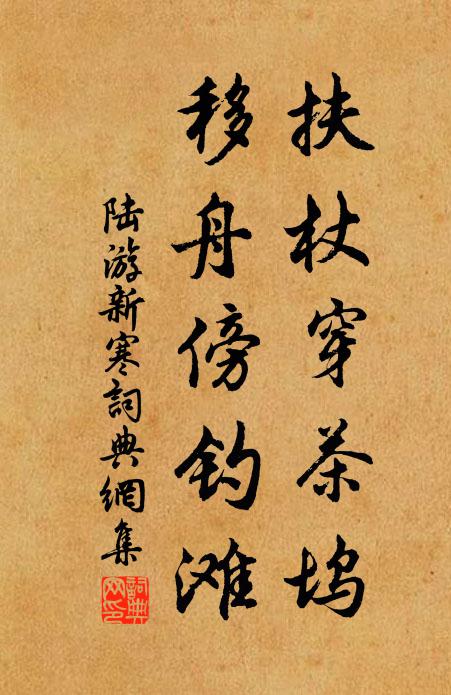 扶杖穿茶坞
移舟傍钓滩
陆游新寒詞典網集
詞典网印